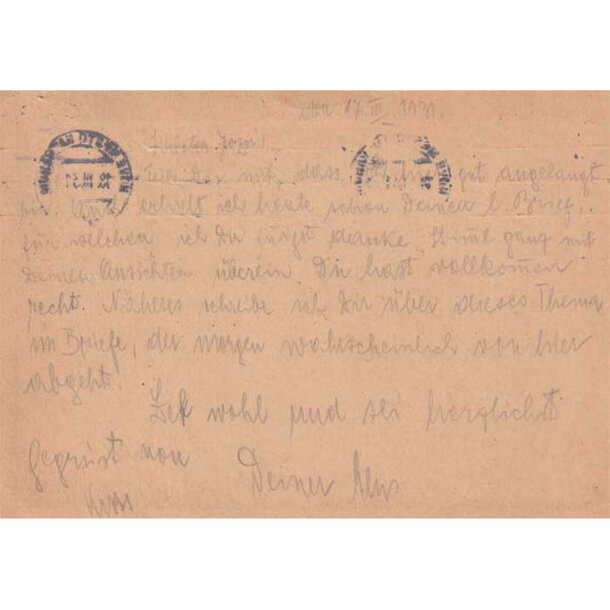 den 17. III. 1931.
Liebster
Teile Dir mit, dass ich gut angelangt
bin. Und erhielt ich heute schon Deinen l. Brief,
für welchen ich Dir innigst danke. Stimme ganz mit
Deinen Ansichten überein. Du hast vollkommen
recht. Näheres schreibe ich Dir über dieses Thema
im Briefe, der morgen wahrscheinlich von hier
abgeht.
Leb wohl und sei herzlichst
gegrüsst von Deiner